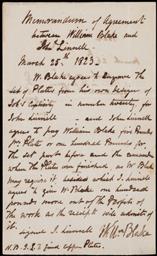 Memorandum of Agreement
between William Blake and
John Linnell
March 25th 1823
W. Blake agrees to Engrave the
Set of Plates from his own designs of
Job's Captivity in number twenty, for
John Linnell — and John Linnell
agrees to pay William Blake five Pounds
Pr. Plate or one hundred Pounds for the
Set part before and the remainder
when the Plates are finished as Mr Blake
may require it, besides which J. Linnell
agrees to give W. Blake one hundred
pounds more out of the Profits of
the work as the receipts will admit of
it.
Signed J. Linnell
Wm Blake
N.B. J.L. to find Copper Plates.